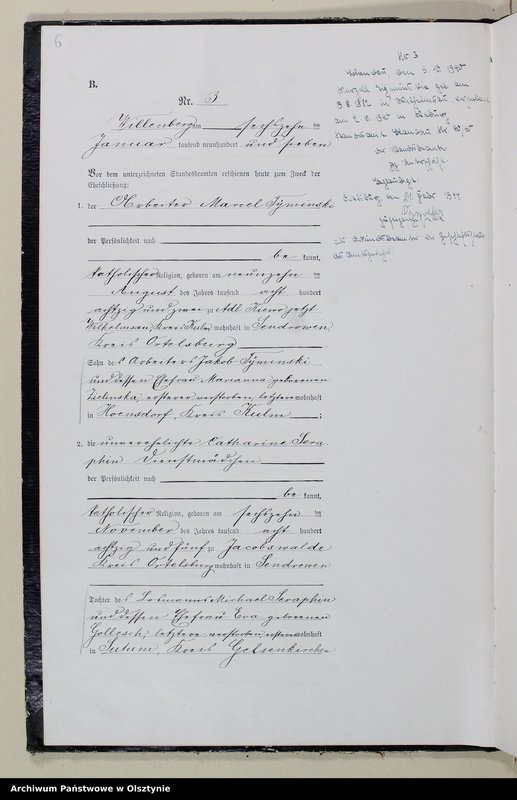 6
B.
Nr. 3
Willenberg am sechszehn ten
Januar tausend neunhundert und sieben
Vor dem unterzeichneten Standesbeamten erschienen heute zum Zweck der
Eheschließung:
1. der Arbeiter Marcel Tyminski
der Persönlichkeit nach
be kannt,
katholischer Religion, geboren am neunzehn ten
August des Jahres tausend acht hundert
achtzig und zwei zu Adl. jetzt
Wilhelmsau, Kreis Kulm wohnhaft in Sendrowen
Kreis Ortelsburg
Sohn des Arbeiters Jakob Tyminski
und dessen Ehefrau Marianna geborenen
Zielinska, ersterer verstorben, letztere wohnhaft
in Hoensdorf, Kreis Kulm ;
2. die unverehelichte Catharine Sera-
phin Dienstmädchen
der Persönlichkeit nach
be kannt,
katholischer Religion, geboren am sechszehn ten
November des Jahres tausend acht hundert
achtzig und fünf zu Jacobswalde
Kreis Ortelsburg, wohnhaft in Sendrowen
Tochter des Losmanns Michael Seraphin
und dessen Ehefrau Eva geborenen
Gollesch, letztere verstorben, ersterer wohnhaft
in Sutum, Kreis Gelsenkirchen
No 3
den 5. 12. 1940
geb. am
19.8.1882 in Wilhelmsau
am
Standesamt
der Standesbeamte
Beglaubigt.
Ortelsburg den 21. Febr. 1944
Archiwum Państwowe w Olsztynie